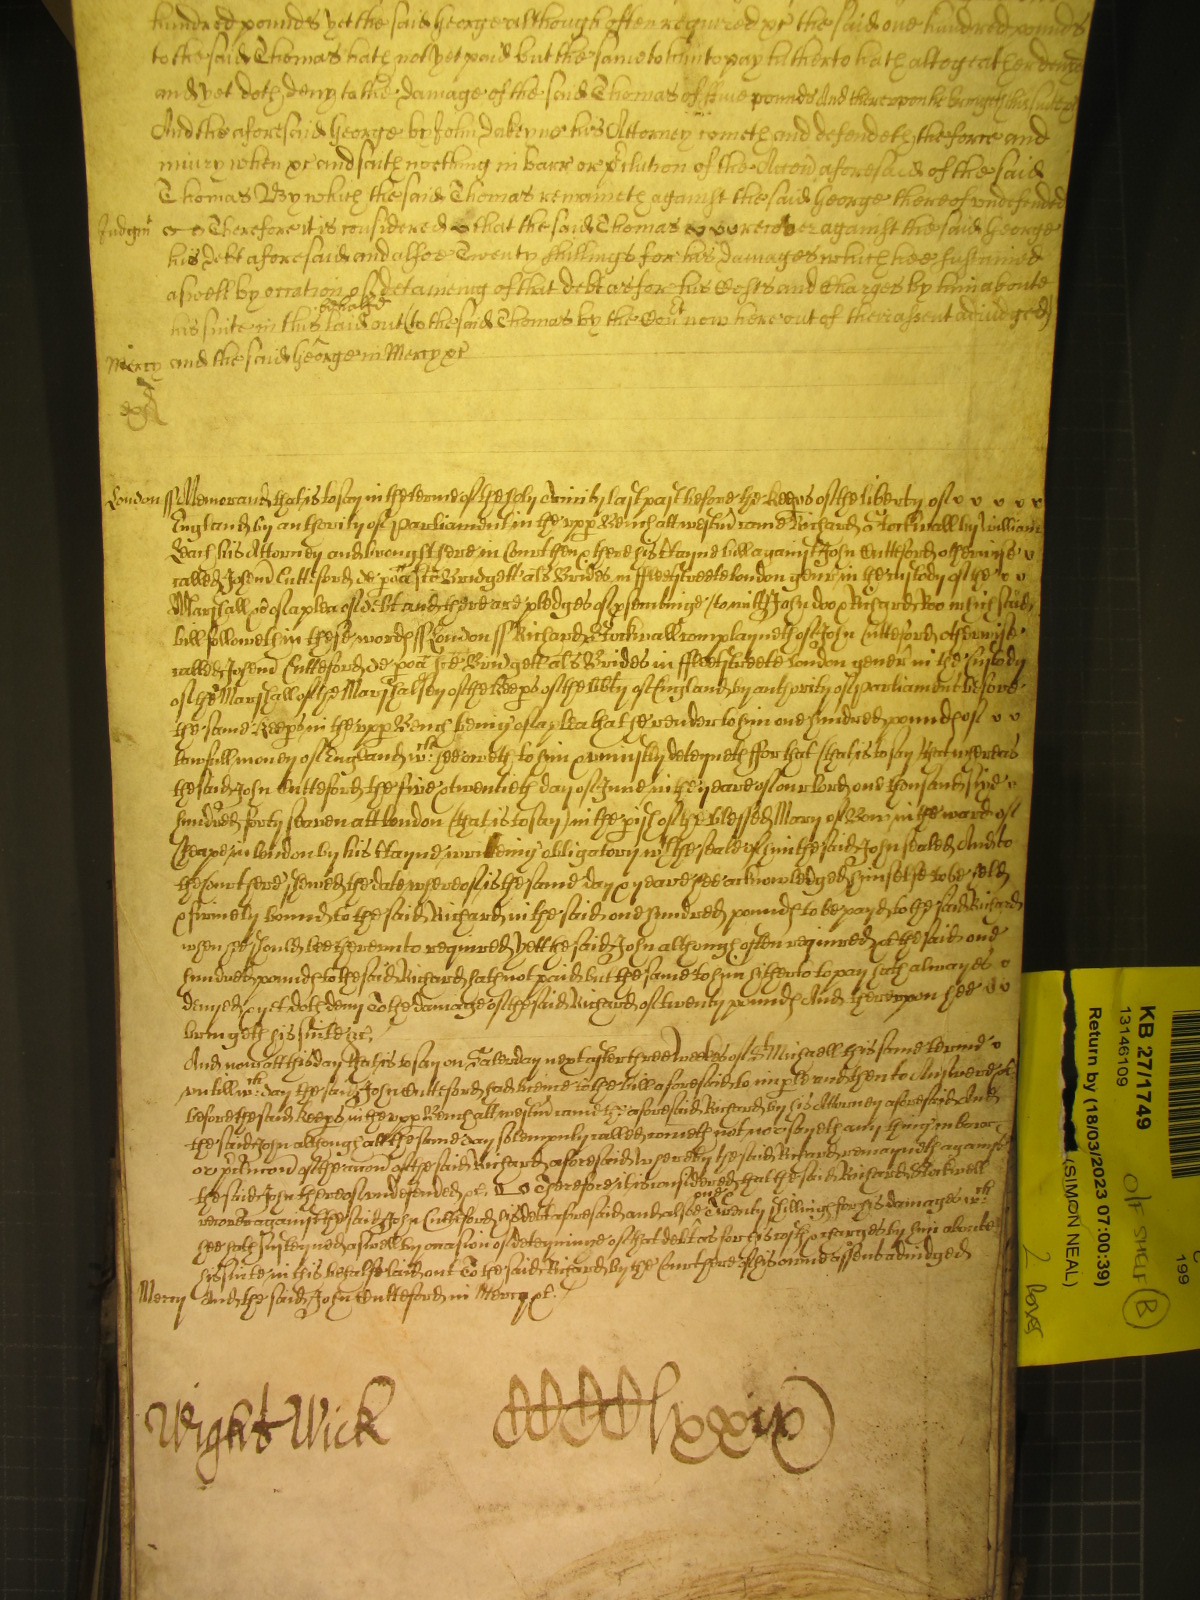 hundred pounds yet the said George although often required &c the said one hundred pounds
to the said Thomas hath not yet paid but the same to him to pay hitherto hath altogeather denied
and yet doth deny to the damage of the said Thomas of five pounds And thereupon he bringeth his suite &c
And the aforesaid George by John Dakeyne his Attorney cometh and defendeth the force and
iniury when &c and saith nothing in barr or p'clution of the Accon aforesaid of the said
Thomas By which the said Thomas remaineth against the said George thereof undefended
Judgmt Therefore it is considered that the said Thomas recover against the said George
his debt aforesaid and alsoe Twenty shillings for his damages which hee sustained
aswell by occation of detaineing of that debt as for his Costs and Charges by him aboute
his suite in this behalfe laid out to the said Thomas by the Court now here out of their assent adiudged
Mercy and the said George in Mercy &c
London ss Memorand that is to say in the terme of the holy Trinity last past before the Keeps of the liberty of
England by authority of Parliament in the upp Bench att westm came Richard Stockwall by William
his Attorney and brought here in Court then & there his playne bill against John Cutteford otherwise
called Cutteford de poa Ste Bridgett als Brides in ffleetstreete London genr in the custody of the
Marshall &c of a plea of debt and there are pledges of p'secutinge to witt John doo & Richard Roo which said
bill followeth in these words ss London ss Richard Stockwall complayneth of John Cutteford otherwise
called Cutteford de poa Ste Bridgett als Brides in ffleetstreete London gener in the custody
of the Marshall of the Marshalsey of the Keeps of the libty of England by authority of Parliament before
the same Keeps in the upp Bench being of a plea that he render to him one hundred pounds of
lawfull money of England wch hee oweth to him & uniustly deteyneth ffor that (that is to say) that whereas
the said John Cutteford the five & twentieth day of June in the yeare of our Lord one thousand sixe
hundred forty seaven att London (that is to say) in the pish of the blessed Mary of Bow in the ward of
Cheape in London by his playne writeing obligatory wth the seale of him the said John sealed And to
the Court here shewed the date whereof is the same day & yeare hee acknowledged himselfe to be held
& firmely bound to the said Richard in the said one hundred pounds to be payd to the said Richard
when hee should bee thereunto required Yett the said John although often required &c the said one
hundred pounds to the said Richard hath not paid but the same to him hitherto to pay hath alwayes
denyed & yet doth deny To the damage of the said Richard of twenty pounds And thereupon hee
bringeth his suite &c.
And now att this day that is to say on Saterday next after three weekes of St Michaell this same terme
untill wch day the said John Cutteford had licence to the bill aforesaid to imple and then to Answere &c
before the said Keeps in the upp Bench att westm came the aforesaid Richard by his Attorney aforesaid And
the said John although att the same day solempnly called cometh not nor sayeth any thing in barr
or p'clucon of the accon of the said Richard aforesaid whereby the said Richard remayneth against
the said John thereof undefended &c. Therefore it is considered that the said Richard Stockwell
recover against the said John Cutteford his debt aforesaid and alsoe Twenty shillings for his damages wch
hee hath susteyned aswell by occasion of deteyninge of that debt as for his costs & charges by him aboute
his suite in this behalfe laid out To the said Richard by the Court here of his owne assent adiudged
Mercy And the said John Cutteford in Mercy &c.
Wight Wick CCCClxxix
KB 27/1749
13146109
Return by (18/03/2023 07:00:39)
(SIMON NEAL)
O/F SHELF B
2 boxes
199